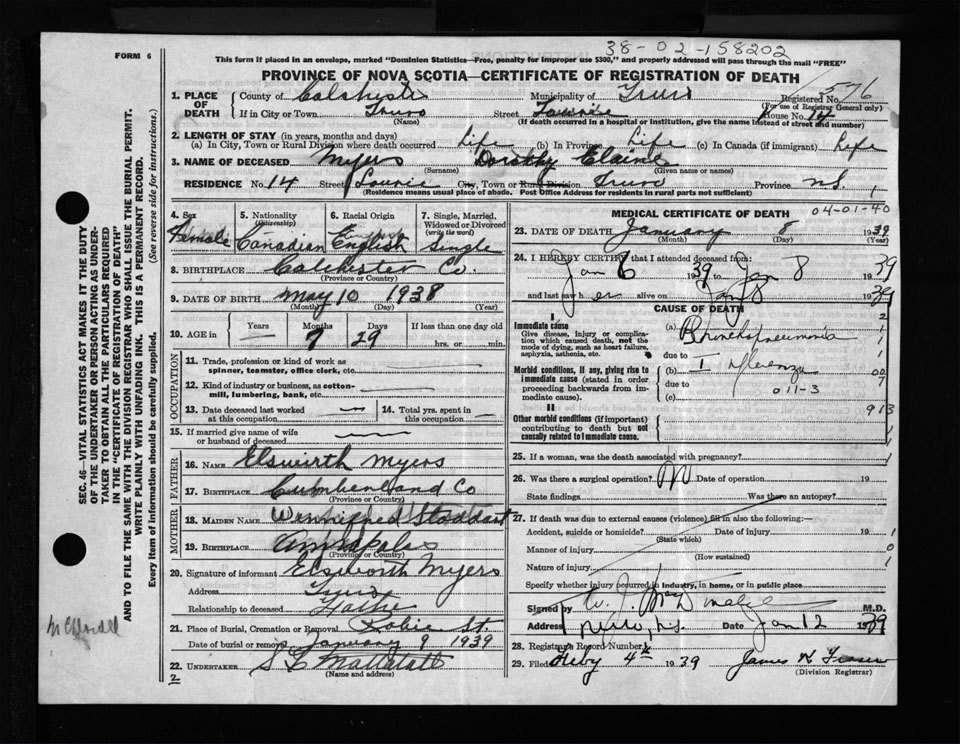 38-02-158202
FORM 6
This form if placed in an envelope, marked "Dominion Statistics—Free, penalty for improper use $300," and properly addressed will pass through the mail "FREE"
PROVINCE OF NOVA SCOTIA—CERTIFICATE OF REGISTRATION OF DEATH
Registered No. 576
(For use of Registrar General only)
1. PLACE OF DEATH
County of Colchester Municipality of Truro
If in City or Town Truro Street Laurie House No. 14
(Name) (If death occurred in a hospital or institution, give the name instead of street and number)
2. LENGTH OF STAY (in years, months and days)
(a) In City, Town or Rural Division where death occurred Life (b) In Province Life (c) In Canada (if immigrant) Life
3. NAME OF DECEASED Myers Dorothy Elaine
(Surname) (Given name or names)
RESIDENCE No. 14 Street Laurie City, Town or Rural Division Truro Province N.S.
(Residence means usual place of abode. Post Office Address for residents in rural parts not sufficient)
4. Sex Female
5. Nationality (Citizenship) Canadian
6. Racial Origin English
7. Single, Married, Widowed or Divorced (write the word) Single
8. BIRTHPLACE Colchester Co.
(Province or Country)
9. DATE OF BIRTH May 10 1938
(Month) (Day) (Year)
10. AGE in Years Months 7 Days 29 If less than one day old hrs. or min.
OCCUPATION
11. Trade, profession or kind of work as spinner, teamster, office clerk, etc.
12. Kind of industry or business, as cotton-mill, lumbering, bank, etc.
13. Date deceased last worked at this occupation
14. Total yrs. spent in this occupation
15. If married give name of wife or husband of deceased
FATHER
16. NAME Elsworth Myers
17. BIRTHPLACE Cumberland Co
(Province or Country)
MOTHER
18. MAIDEN NAME Winnifred Stoddart
19. BIRTHPLACE Annapolis
(Province or Country)
20. Signature of informant Elsworth Myers
Address Truro
Relationship to deceased Father
21. Place of Burial, Cremation or Removal Robie St.
Date of burial or removal January 9 1939
22. UNDERTAKER
(Name and address)
MEDICAL CERTIFICATE OF DEATH
04-01-40
23. DATE OF DEATH January 8 1939
(Month) (Day) (Year)
24. I HEREBY CERTIFY that I attended deceased from:
Jan 6 1939 to Jan 8 1939
and last saw her alive on Jan 8 1939
CAUSE OF DEATH
I
Immediate cause
Give disease, injury or complication which caused death, not the mode of dying, such as heart failure, asphyxia, asthenia, etc.
(a) Bronchopneumonia
due to
Morbid conditions, if any, giving rise to immediate cause (stated in order proceeding backwards from immediate cause).
(b) Influenza
due to 011-3
(c)
II
Other morbid conditions (if important) contributing to death but not causally related to immediate cause.
913
25. If a woman, was the death associated with pregnancy?
26. Was there a surgical operation? No Date of operation 19
State findings Was there an autopsy?
27. If death was due to external causes (violence) fill in also the following:—
Accident, suicide or homicide? Date of injury 19
(State which)
Manner of injury
(How sustained)
Nature of injury
Specify whether injury occurred in industry, in home, or in public place
Signed by M.D.
Address Truro, N.S. Date Jan 12 1939
28. Registrar's Record Number
29. Filed Feby 4th 1939 James K Fraser
(Division Registrar)
SEC. 46—VITAL STATISTICS ACT MAKES IT THE DUTY OF THE UNDERTAKER OR PERSON ACTING AS UNDERTAKER TO OBTAIN ALL THE PARTICULARS REQUIRED IN THE "CERTIFICATE OF REGISTRATION OF DEATH" AND TO FILE THE SAME WITH THE DIVISION REGISTRAR WHO SHALL ISSUE THE BURIAL PERMIT.
WRITE PLAINLY WITH UNFADING INK. THIS IS A PERMANENT RECORD.
Every item of information should be carefully supplied. (See reverse side for instructions.)